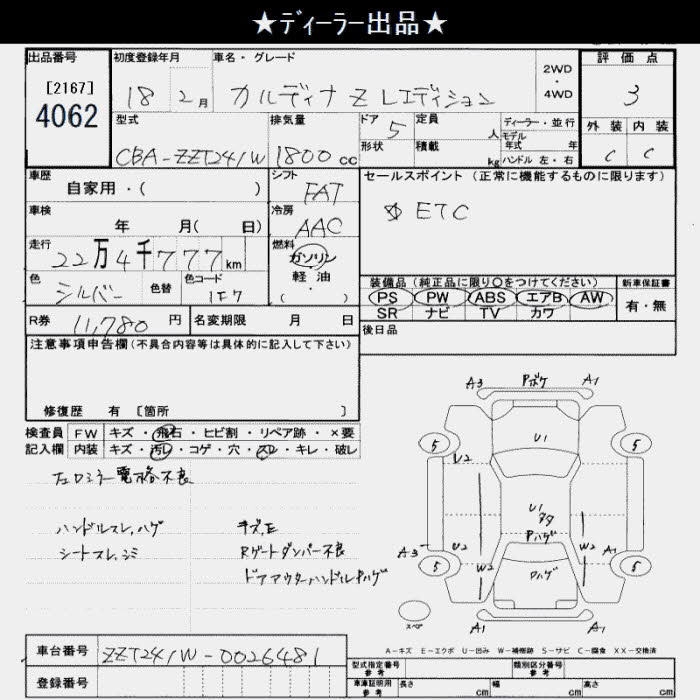 ★ディーラー出品★
出品番号
[2167]
4062
初度登録年月
18 2月
車名・グレード
カルディナ Z Lエディション
2WD
・
4WD
評価点
3
外装 内装
C C
型式
CBA-ZZT241W
排気量
1800 cc
ドア 5
形状
定員 人
積載 kg
ディーラー・並行
モデル年式 年
ハンドル 左・右
車歴
自家用・( )
シフト
FAT
車検
年 月( 日)
冷房
AAC
走行
22万4千777km
燃料
ガソリン
軽油
( ・ )
色
シルバー
色替
色コード
1F7
R券 11,780 円
名変期限 月 日
セールスポイント(正常に機能するものに限ります)
ETC
装備品(純正品に限り○をつけてください)
PS PW ABS エアB AW
SR ナビ TV カワ
新車保証書
有・無
後日品
注意事項申告欄(不具合内容等は具体的に記入して下さい)
修復歴 有 [箇所 ]
検査員
記入欄
FW キズ・飛石・ヒビ割・リペア跡・×要
内装 キズ・汚レ・コゲ・穴・スレ・キレ・破レ
左ロミラー電格不良
ハンドルスレ,ハゲ
シートスレ,シミ
キズ,E
Rゲートダンパー不良
ドアアウターハンドルPハゲ
A3 Pボケ A1
U1
5 5
U2
U1
タタ
Pハゲ
A3 U2 W2
W2
5 5
Pハゲ
スペア
A1 A1
A-キズ E-エクボ U-凹み W-補修跡 S-サビ C-腐食 XX-交換済
車台番号 ZZT241W-0026481
登録番号
型式指定番号
参考
類別区分番号
参考
車庫証明用
参考
長さ cm 幅 cm 高さ cm